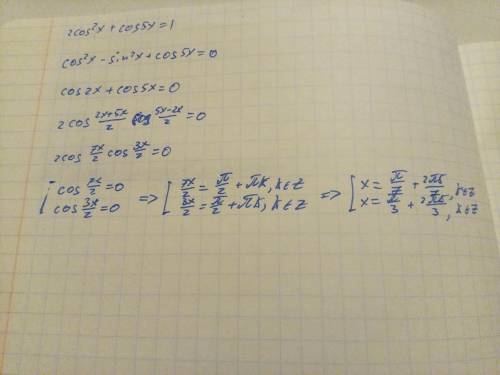 2cos²x + cos5x = 1
cos²x - sin²x + cos5x = 0
cos2x + cos5x = 0
2cos (2x+5x)/2 cos (5x-2x)/2 = 0
2cos 7x/2 cos 3x/2 = 0
[ cos 7x/2 = 0 => [ 7x/2 = π/2 + πk, k∈Z => [ x = π/7 + 2πk/7, k∈Z
cos 3x/2 = 0 3x/2 = π/2 + πk, k∈Z x = π/3 + 2πk/3, k∈Z